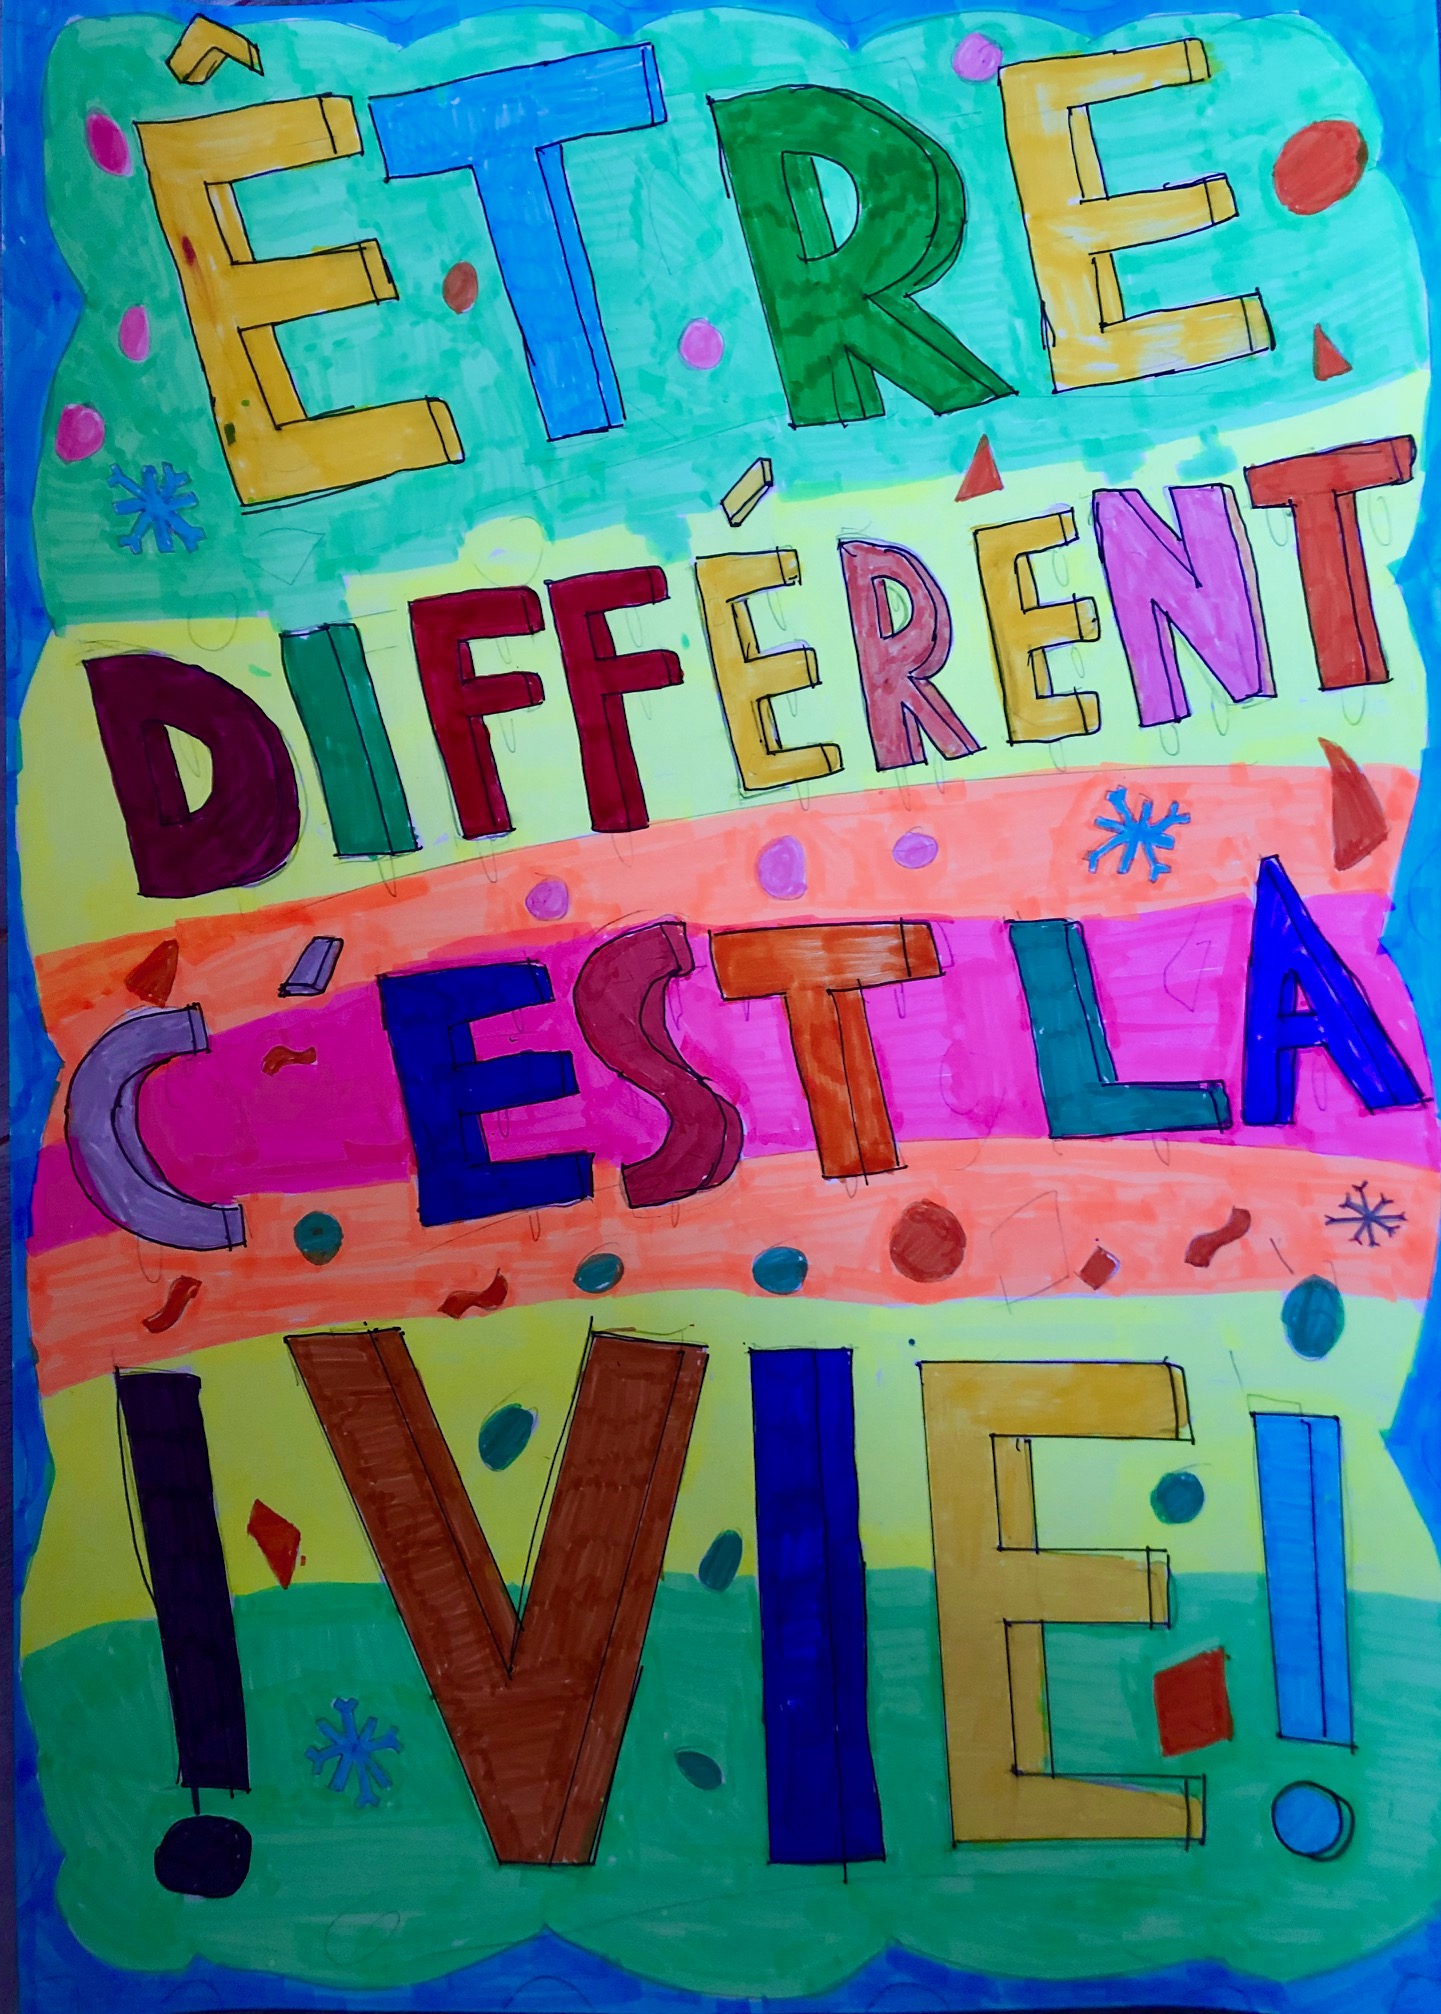 ÊTRE
DIFFÉRENT
C'EST LA
! VIE !